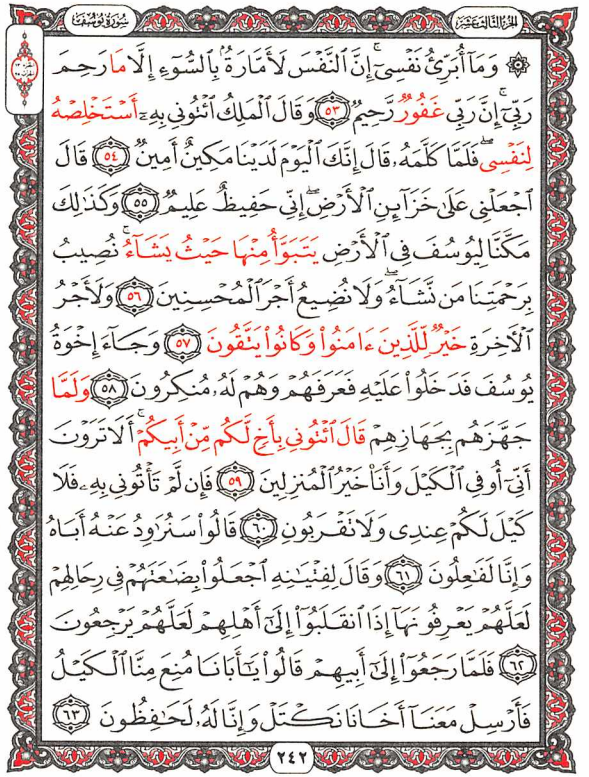 سورة يوسف
الجزء الثالث عشر
۞ وَمَآ أُبَرِّئُ نَفْسِىٓ ۚ إِنَّ ٱلنَّفْسَ لَأَمَّارَةٌۢ بِٱلسُّوٓءِ إِلَّا مَا رَحِمَ
رَبِّىٓ ۚ إِنَّ رَبِّى غَفُورٌ رَّحِيمٌ ٥٣ وَقَالَ ٱلْمَلِكُ ٱئْتُونِى بِهِۦٓ أَسْتَخْلِصْهُ
لِنَفْسِى ۖ فَلَمَّا كَلَّمَهُۥ قَالَ إِنَّكَ ٱلْيَوْمَ لَدَيْنَا مَكِينٌ أَمِينٌ ٥٤ قَالَ
ٱجْعَلْنِى عَلَىٰ خَزَآئِنِ ٱلْأَرْضِ ۖ إِنِّى حَفِيظٌ عَلِيمٌ ٥٥ وَكَذَٰلِكَ
مَكَّنَّا لِيُوسُفَ فِى ٱلْأَرْضِ يَتَبَوَّأُ مِنْهَا حَيْثُ يَشَآءُ ۚ نُصِيبُ
بِرَحْمَتِنَا مَن نَّشَآءُ ۖ وَلَا نُضِيعُ أَجْرَ ٱلْمُحْسِنِينَ ٥٦ وَلَأَجْرُ
ٱلْءَاخِرَةِ خَيْرٌ لِّلَّذِينَ ءَامَنُوا۟ وَكَانُوا۟ يَتَّقُونَ ٥٧ وَجَآءَ إِخْوَةُ
يُوسُفَ فَدَخَلُوا۟ عَلَيْهِ فَعَرَفَهُمْ وَهُمْ لَهُۥ مُنكِرُونَ ٥٨ وَلَمَّا
جَهَّزَهُم بِجَهَازِهِمْ قَالَ ٱئْتُونِى بِأَخٍ لَّكُم مِّنْ أَبِيكُمْ ۚ أَلَا تَرَوْنَ
أَنِّىٓ أُوفِى ٱلْكَيْلَ وَأَنَا۠ خَيْرُ ٱلْمُنزِلِينَ ٥٩ فَإِن لَّمْ تَأْتُونِى بِهِۦ فَلَا
كَيْلَ لَكُمْ عِندِى وَلَا تَقْرَبُونِ ٦٠ قَالُوا۟ سَنُرَٰوِدُ عَنْهُ أَبَاهُ
وَإِنَّا لَفَٰعِلُونَ ٦١ وَقَالَ لِفِتْيَٰنِهِ ٱجْعَلُوا۟ بِضَٰعَتَهُمْ فِى رِحَالِهِمْ
لَعَلَّهُمْ يَعْرِفُونَهَآ إِذَا ٱنقَلَبُوٓا۟ إِلَىٰٓ أَهْلِهِمْ لَعَلَّهُمْ يَرْجِعُونَ
٦٢ فَلَمَّا رَجَعُوٓا۟ إِلَىٰٓ أَبِيهِمْ قَالُوا۟ يَٰٓأَبَانَا مُنِعَ مِنَّا ٱلْكَيْلُ
فَأَرْسِلْ مَعَنَآ أَخَانَا نَكْتَلْ وَإِنَّا لَهُۥ لَحَٰفِظُونَ ٦٣
٢٤٢